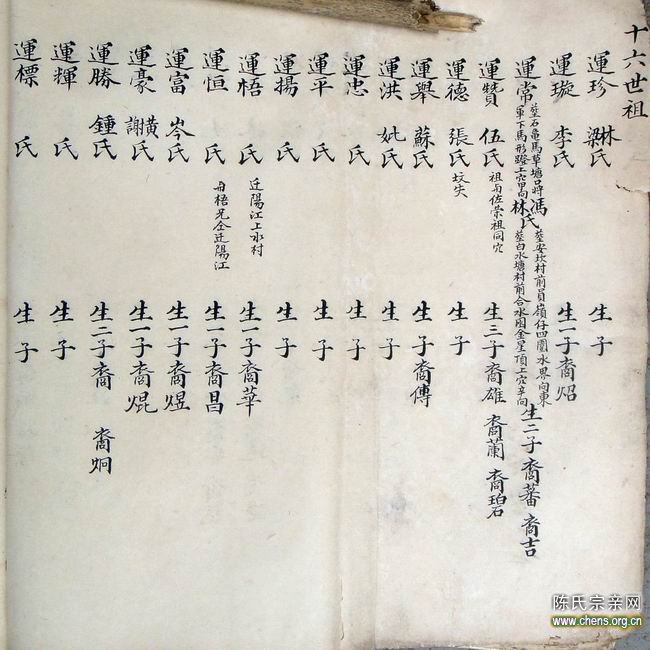 十六世祖
運珍 林梁氏 生子
運璇 李氏 生一子 裔炤
運常 塟石龜馬草塘口將軍下馬形蹬上穴甲向 馮林氏 塟安坎村前員嶺仔四圍水界向東 塟白水塘村前合水園金星頂上穴辛向 生二子 裔蕃 裔吉
運贊 伍氏 祖与佐榮祖同穴 生三子 裔雄 裔蘭 裔碧
運德 張氏 坟失 生子
運舉 蘇氏 生子 裔傳
運洪 妣氏 生子
運忠 氏 生子
運平 氏 生子
運揚 氏 生子
運梧 氏 迁陽江上水村 生一子 裔華
運恒 氏 与梧兄仝迁陽江 生一子 裔昌
運富 岑氏 生一子 裔煜
運豪 黃謝氏 生一子 裔焜
運勝 鍾氏 生二子 裔 裔炯
運輝 氏 生子
運標 氏 生子
陈氏宗亲网
www.chens.org.cn